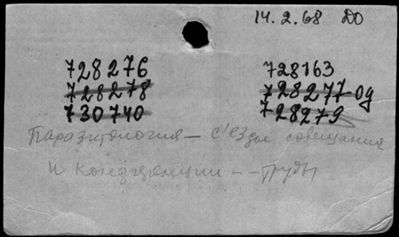 14.2.68 DO
728276 728163
728278 728277-од
730740 728279
Паразитология – с'езды совещания
и конференции – – труды